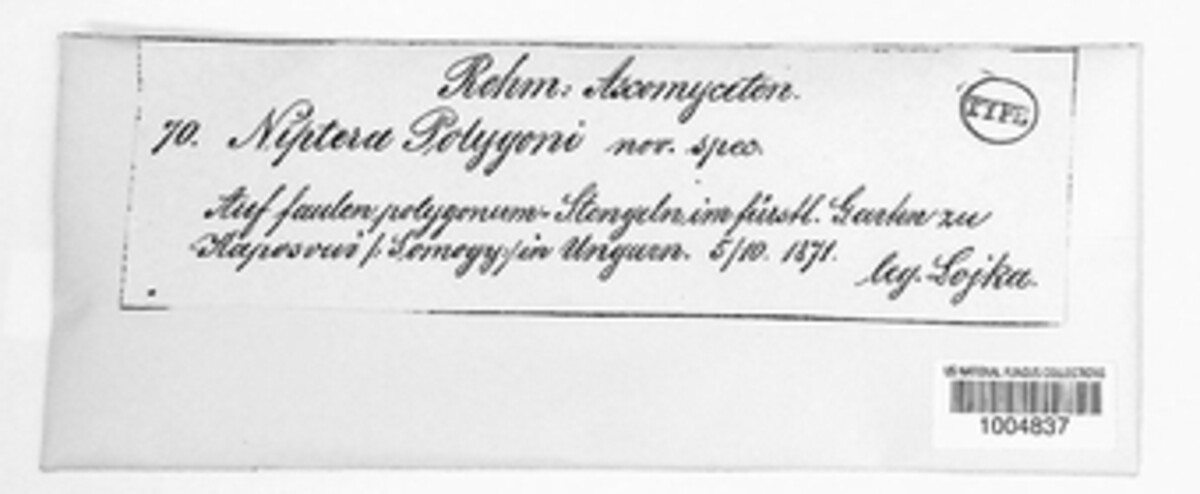 Rehm: Ascomyceten.
TYPE
70. Niptera Polygoni nov. spec.
Auf faulen polygonum-Stengeln im fürstl. Garten zu
Kaposvár /: Somogy:/ in Ungarn. 5/10. 1871.
leg. Lojka.
US NATIONAL FUNGUS COLLECTIONS
1004837